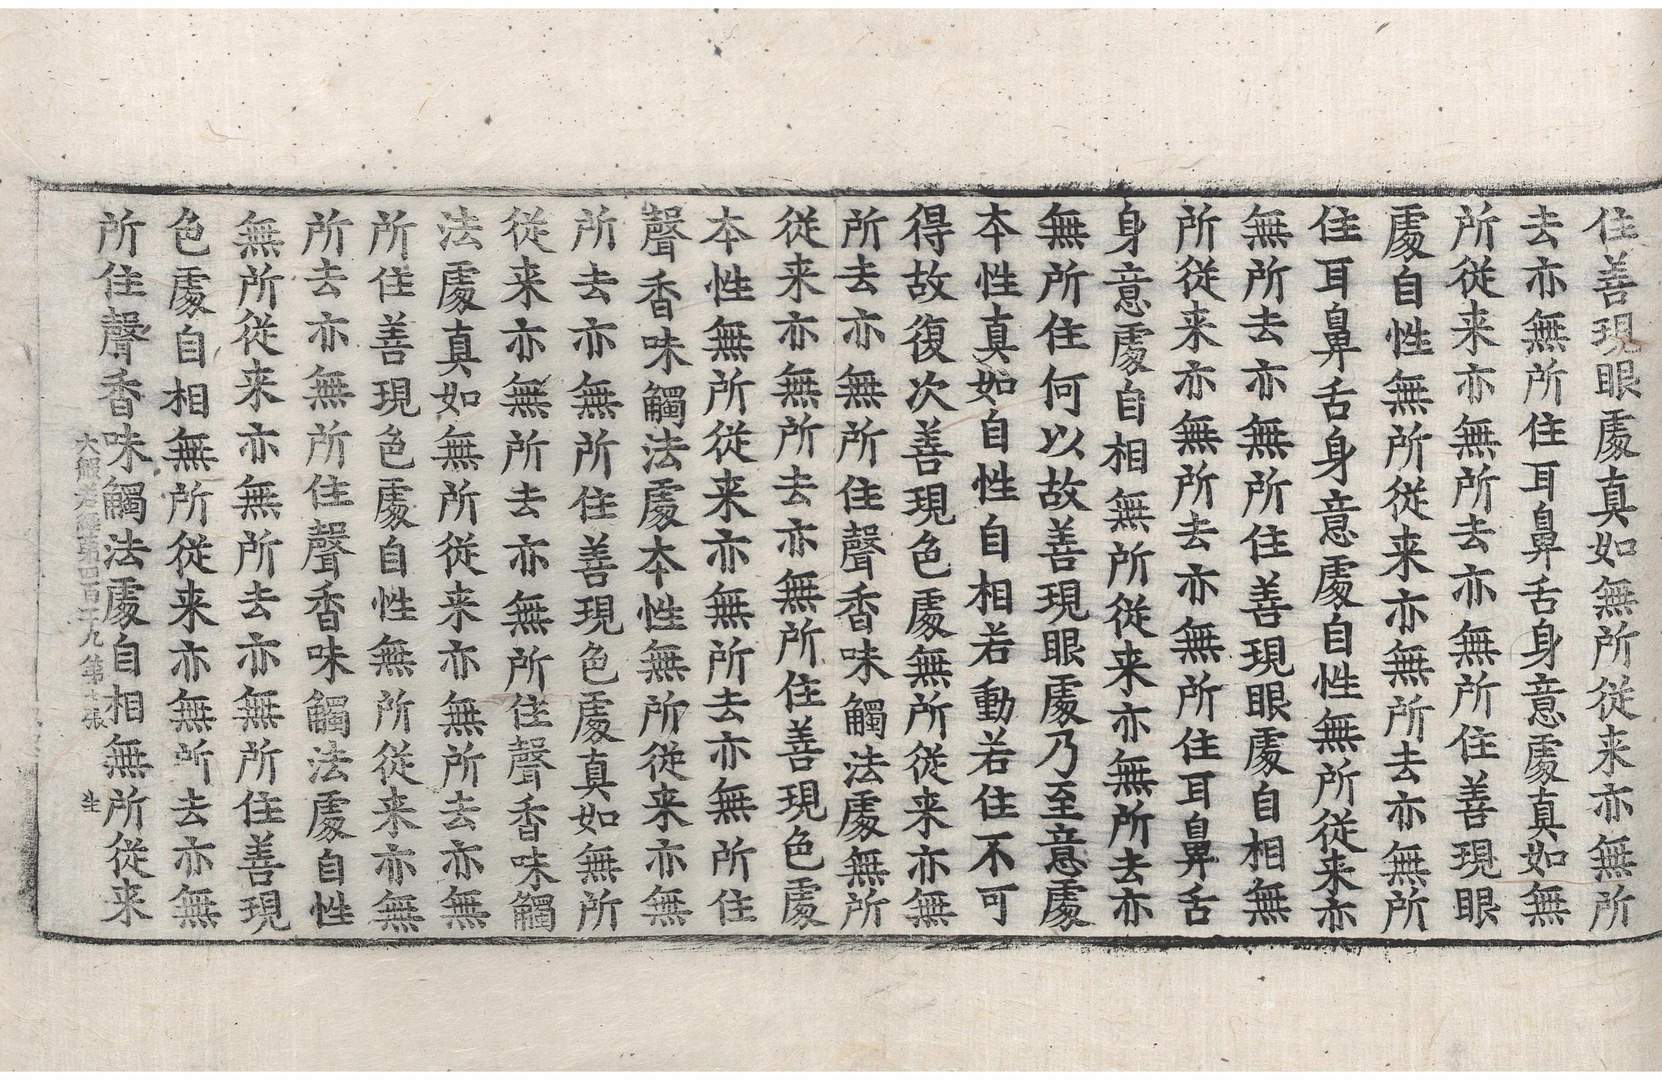 住善現眼處真如無所從来亦無所
去亦無所住耳鼻舌身意處真如無
所從来亦無所去亦無所住善現眼
處自性無所從来亦無所去亦無所
住耳鼻舌身意處自性無所從来亦
無所去亦無所住善現眼處自相無
所從来亦無所去亦無所住耳鼻舌
身意處自相無所從来亦無所去亦
無所住何以故善現眼處乃至意處
本性真如自性自相若動若住不可
得故復次善現色處無所從来亦無
所去亦無所住聲香味觸法處無所
從来亦無所去亦無所住善現色處
本性無所從来亦無所去亦無所住
聲香味觸法處本性無所從来亦無
所去亦無所住善現色處真如無所
從来亦無所去亦無所住聲香味觸
法處真如無所從来亦無所去亦無
所住善現色處自性無所從来亦無
所去亦無所住聲香味觸法處自性
無所從来亦無所去亦無所住善現
色處自相無所從来亦無所去亦無
所住聲香味觸法處自相無所從来
大般若經第四百十九 第 張